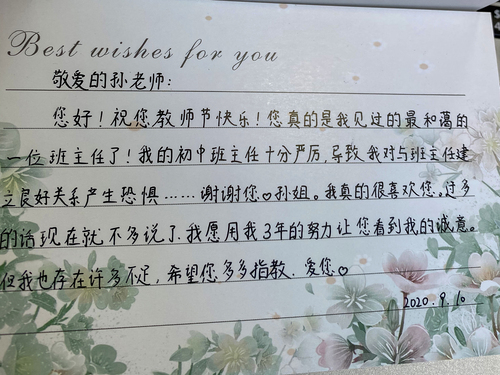 Best wishes for you
敬爱的孙老师:
您好!祝您教师节快乐!您真的是我见过的最和蔼的
一位班主任了!我的初中班主任十分严厉,导致我对与班主任建
立良好关系产生恐惧……谢谢您♡孙姐。我真的很喜欢您。过多
的话现在就不多说了.我愿用我3年的努力让您看到我的诚意。
但我也存在许多不足,希望您多多指教.爱您♡
2020.9.10